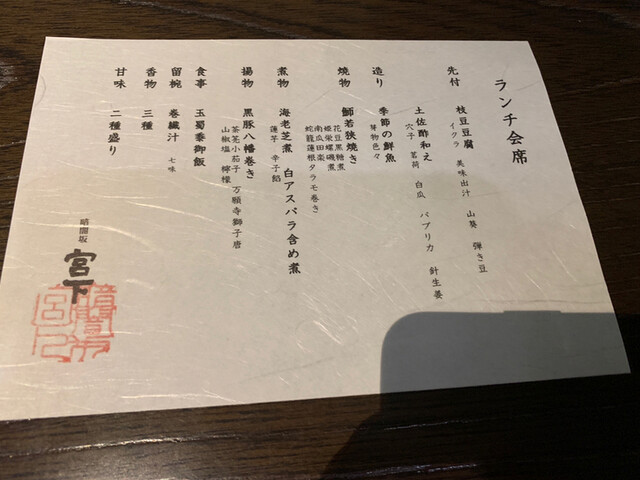 ランチ会席
先付 枝豆豆腐
イクラ 美味出汁 山葵 弾き豆
土佐酢和え
穴子 茗荷 白瓜 パプリカ 針生姜
造り 季節の鮮魚
芽物色々
焼物 鰤若狭焼き
花豆黒糖煮
姫栄螺磯煮
南瓜田楽
蛇籠蓮根タラモ巻き
煮物 海老芝煮 白アスパラ含め煮
蓮芋 辛子餡
揚物 黒豚八幡巻き
茶筅小茄子 万願寺獅子唐
山椒塩 檸檬
食事 玉蜀黍御飯
留椀 巻繊汁 七味
香物 三種
甘味 二種盛り
暗闇坂 宮下